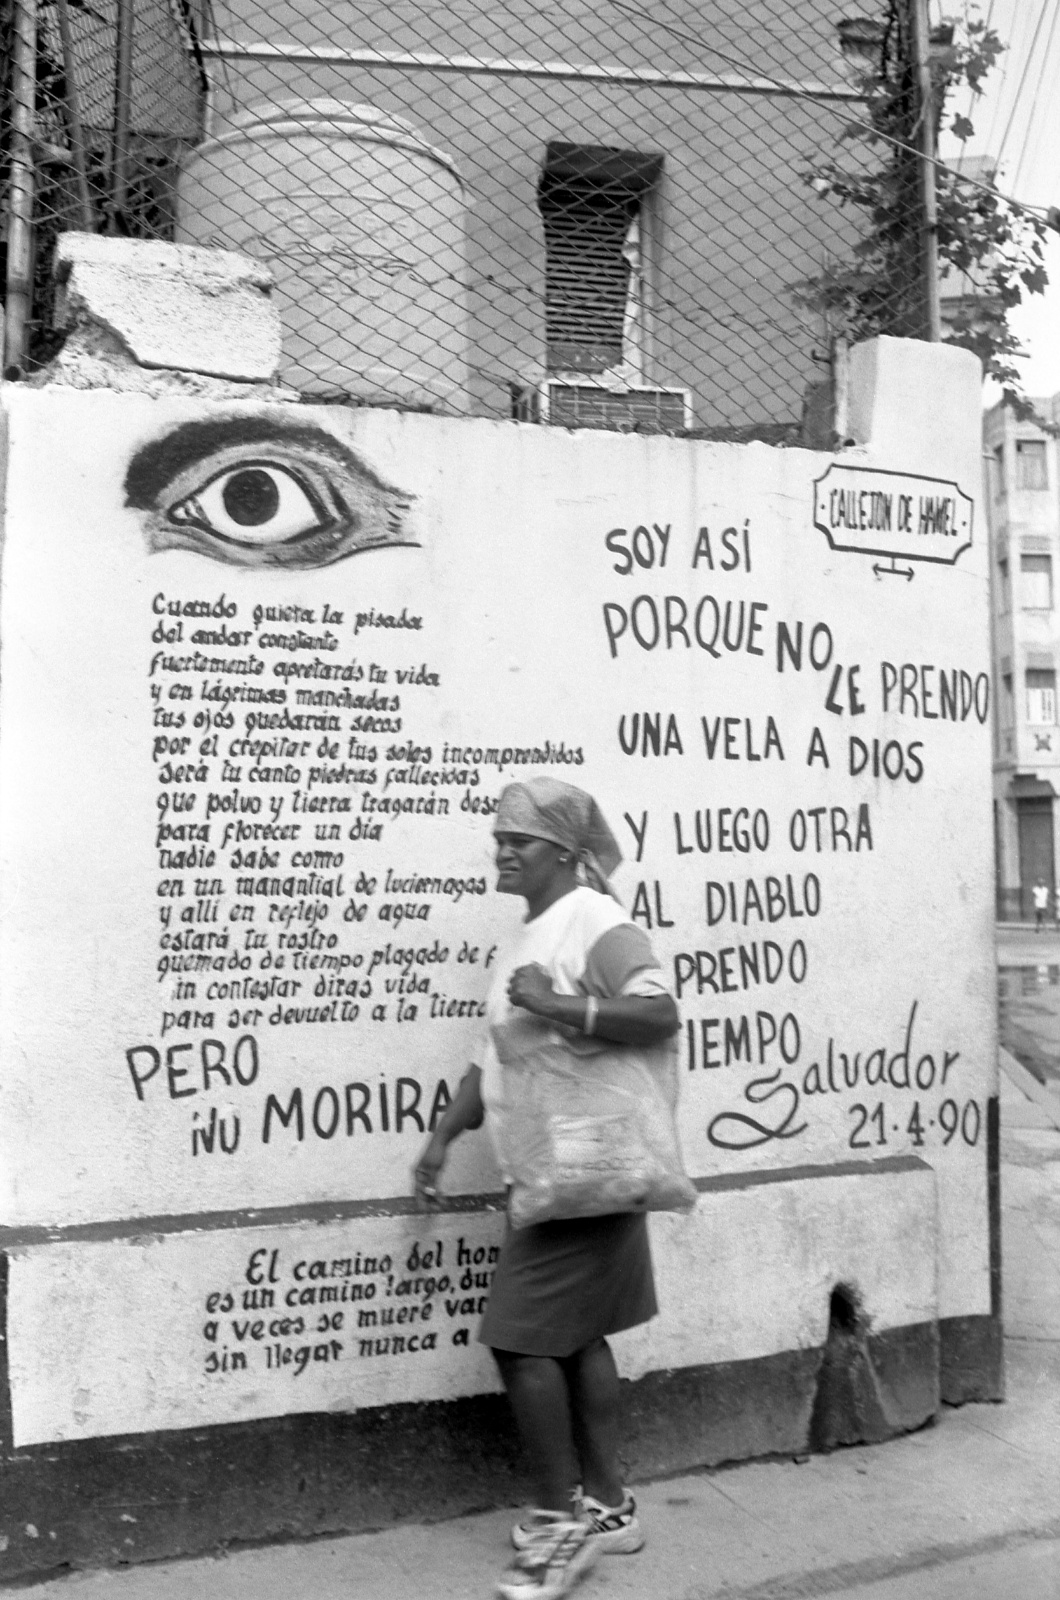 Cuando quiera la pisada
del andar constante
fuertemente apretarás tu vida
y en lágrimas manchadas
tus ojos quedarán secos
por el crepitar de tus soles incomprendidos
será tu canto piedras fallecidas
que polvo y tierra tragarán
para florecer un día
nadie sabe como
en un manantial de luciernagas
y allí en reflejo de agua
estará tu rostro
quemado de tiempo plagado de
in contestar diras vida
para ser devuelto a la tierra
PERO
NU MORIRA
El camino del
es un camino largo,
a veces se muere
sin llegar nunca a
CALLEJON DE HAMEL
SOY ASÍ
PORQUE NO
LE PRENDO
UNA VELA A DIOS
Y LUEGO OTRA
AL DIABLO
PRENDO
IEMPO
Salvador
21·4·90